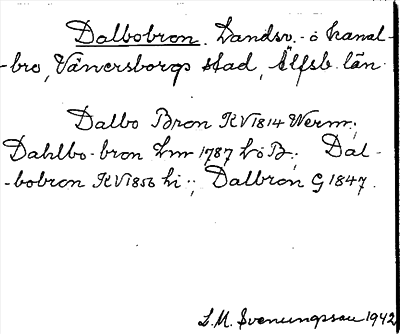 Dalbobron. Landsv.- o kanal-
-bro, Vänersborgs stad, Älfsb. län.
Dalbo Bron KV 1814 Werm.;
Dahlbo-bron Lm 1787 Lö B.; Dal-
-bobron KV 1856 hi.; Dalbron G 1847.
L.M. Svenungsson 1942